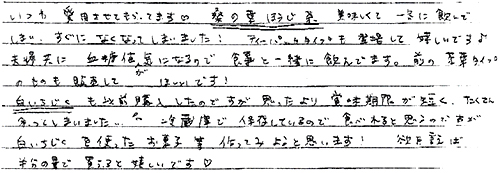 いつも 愛用させてもらってます♡ 桑の葉ほうじ茶 美味しくて 一気に飲んで
しまい すぐになくなってしまいました! ティーパックタイプも 登場して 嬉しいです♪
夫婦共に 血糖値気になるので 食事と一緒に飲んでます。 前の 茶葉タイプ
のものも 販売して が ほしいです!
白いちじく も以前購入したのですが 思ったより 賞味期限が短く、たくさん
余ってしまいました… 冷蔵庫で 保存しているので 食べれると思うのですが
白いちじく を使った お菓子 等 作ってみようと思います! 欲を言えば
半分の量で 買えると嬉しいです♡